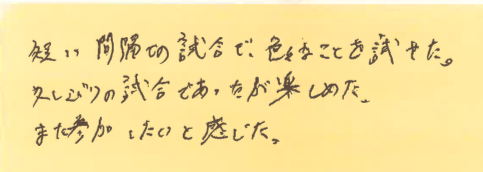 短い間隔での試合で、色々なことを試せた。
久しぶりの試合であったが楽しめた。
また参加したいと感じた。